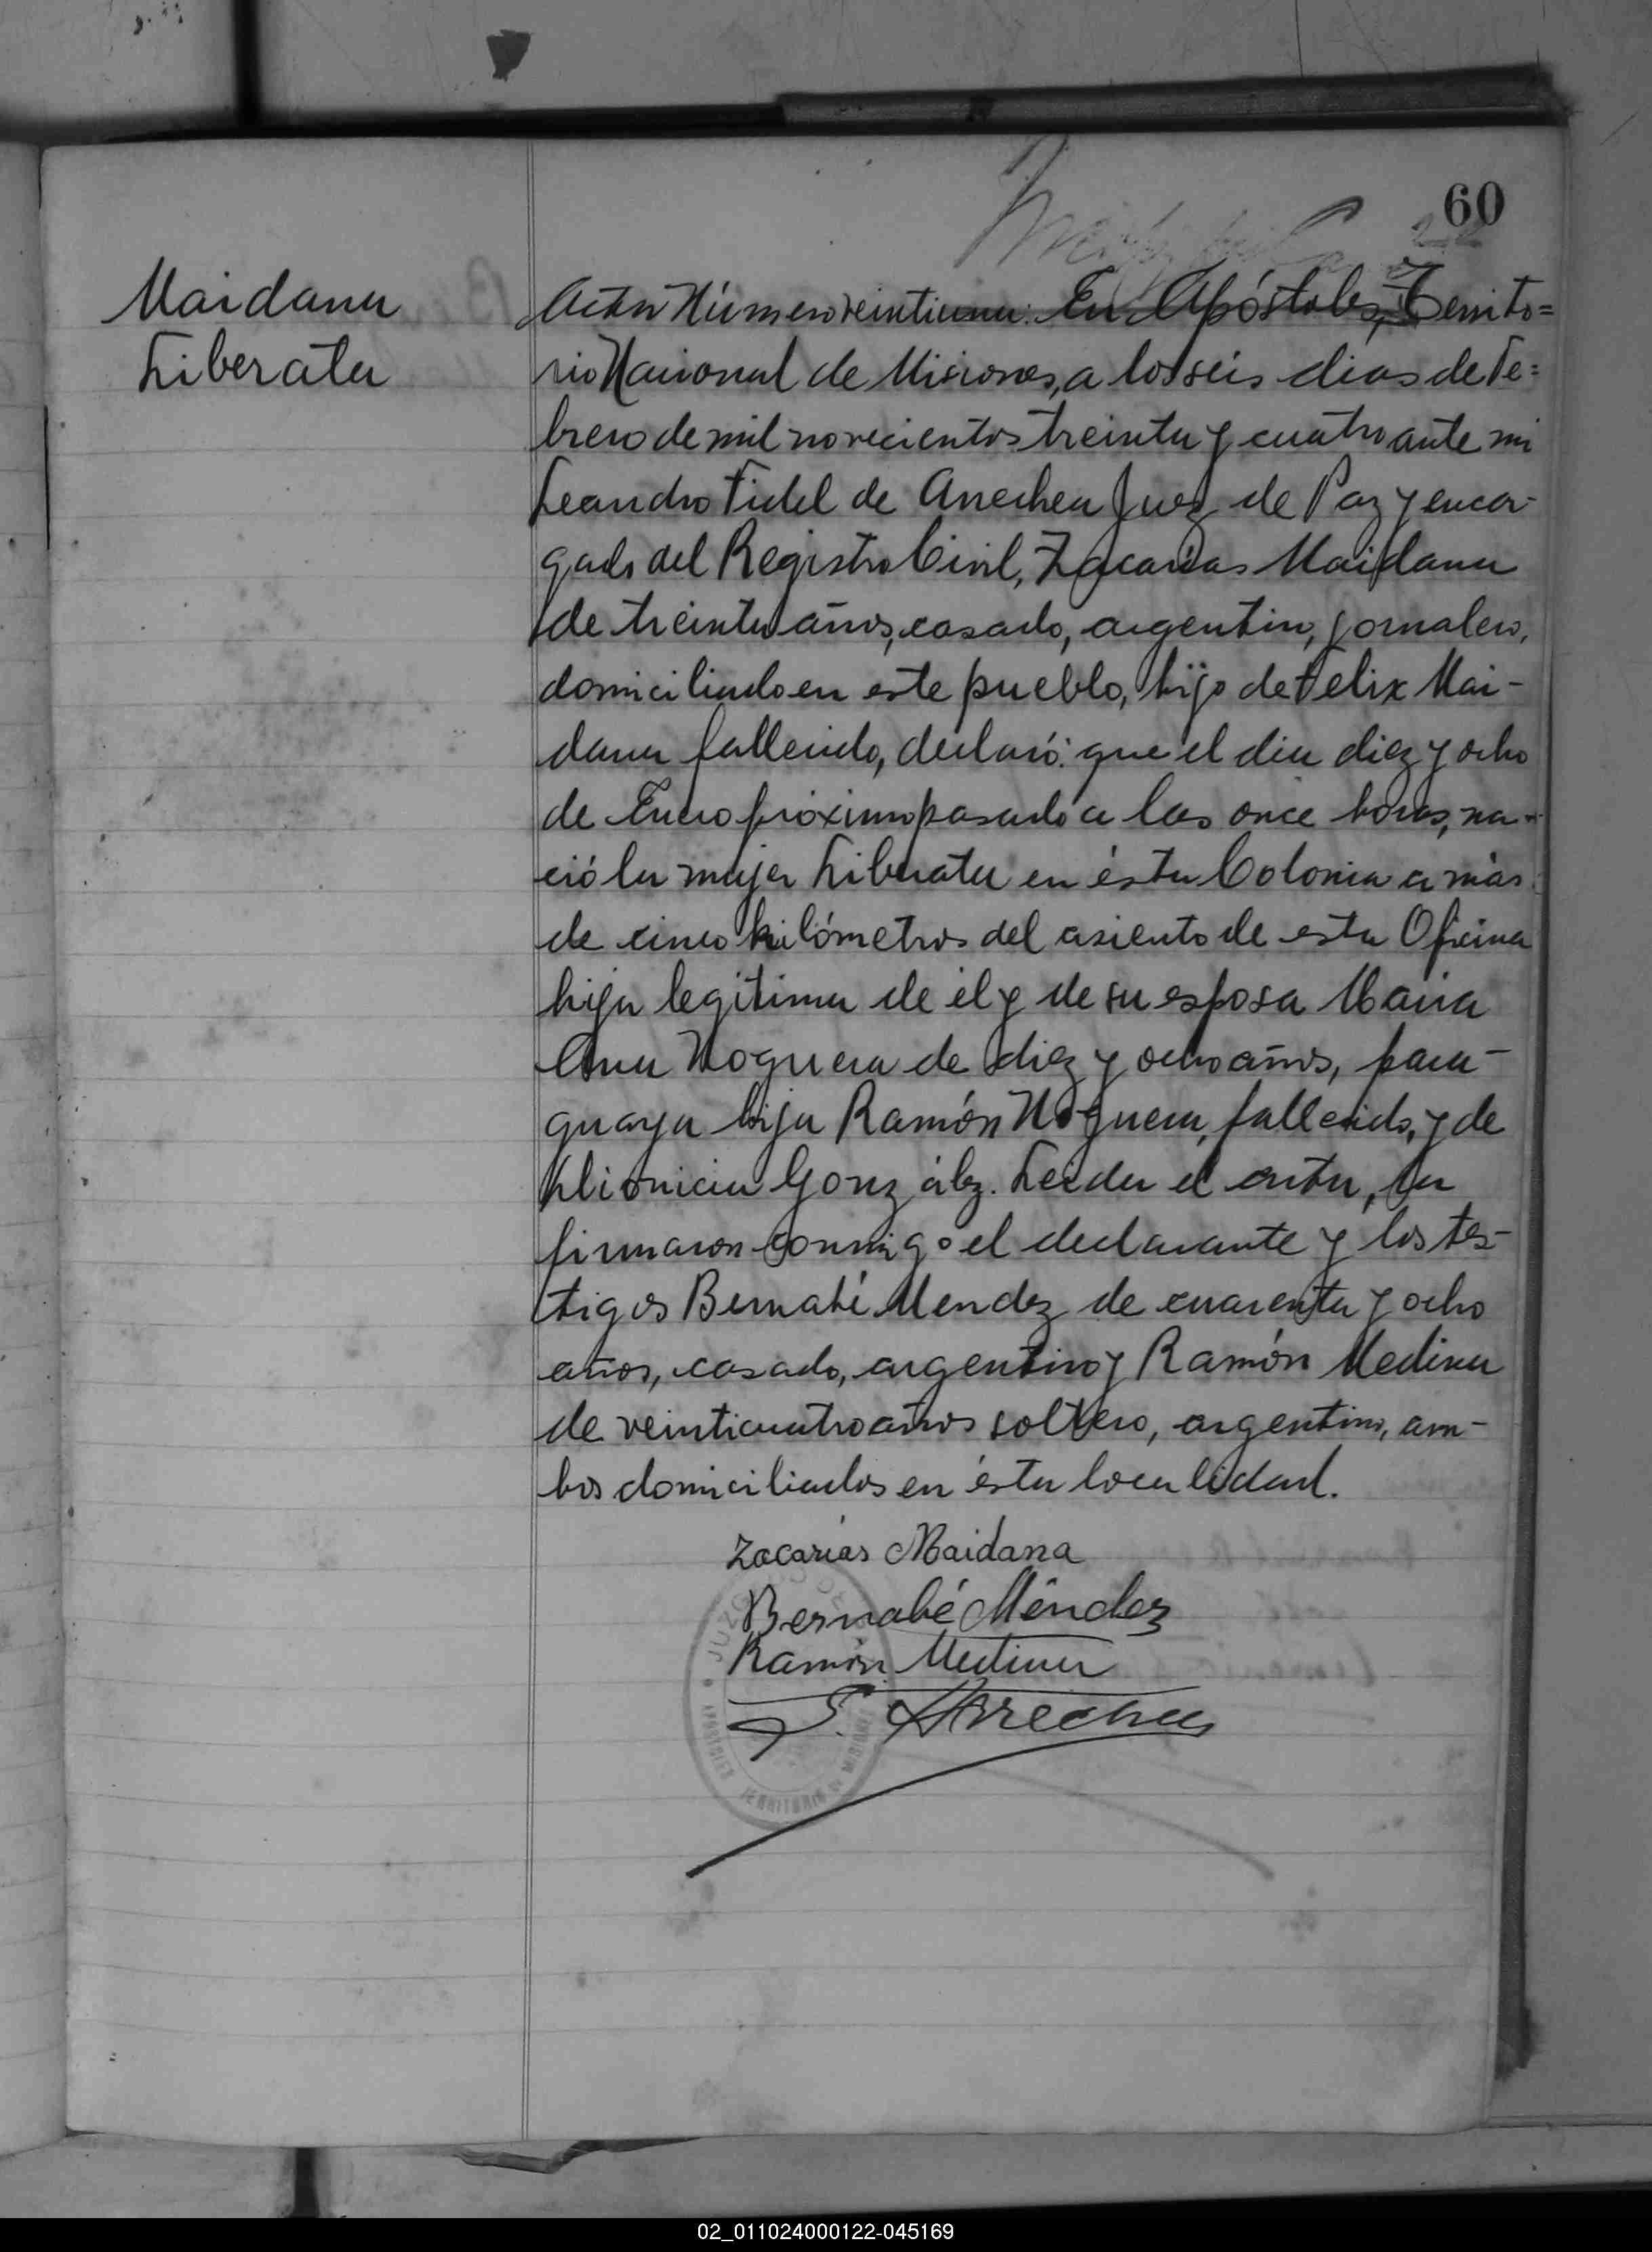 60
Maidana
Liberata
Acta Número veintiuna: En Apóstoles, Territo=
rio Nacional de Misiones, a los seis dias de Fe=
brero de mil novecientos treinta y cuatro ante mi
Leandro Fidel de Arrechea Juez de Paz y encar-
gado del Registro Civil, Zacarías Maidana
de treinta años, casado, argentino, jornalero,
domiciliado en este pueblo, hijo de Felix Mai-
dana fallecido, declaró: que el dia diez y ocho
de Enero próximo pasado a las once horas, na-
ció la mujer Liberata en ésta Colonia a más
de cinco kilómetros del asiento de esta Oficina
hija legítima de él y de su esposa Maria
Ana Noguera de diez y ocho años, para-
guaya hija Ramón Noguera, fallecido, y de
González. Leida el acta, la
firmaron conmigo el declarante y los tes-
tigos Bernabé Mendez de cuarenta y ocho
años, casado, argentino y Ramón Medina
de veinticuatro años soltero, argentino, am-
bos domiciliados en ésta localidad.
Zacarías Maidana
Bernabé Méndez
Ramón Medina
F. Arrechea
JUZG
APOSTOLES TERRITORIO DE MISIONES
02_011024000122-045169